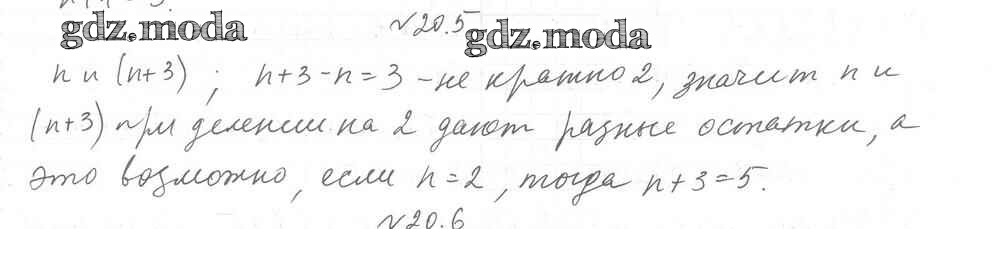 gdz.moda
№20.5
gdz.moda
n и (n+3) ; n+3-n=3 - не кратно 2, значит n и
(n+3) при делении на 2 дают разные остатки, а
это возможно, если n=2, тогда n+3=5.
№20.6